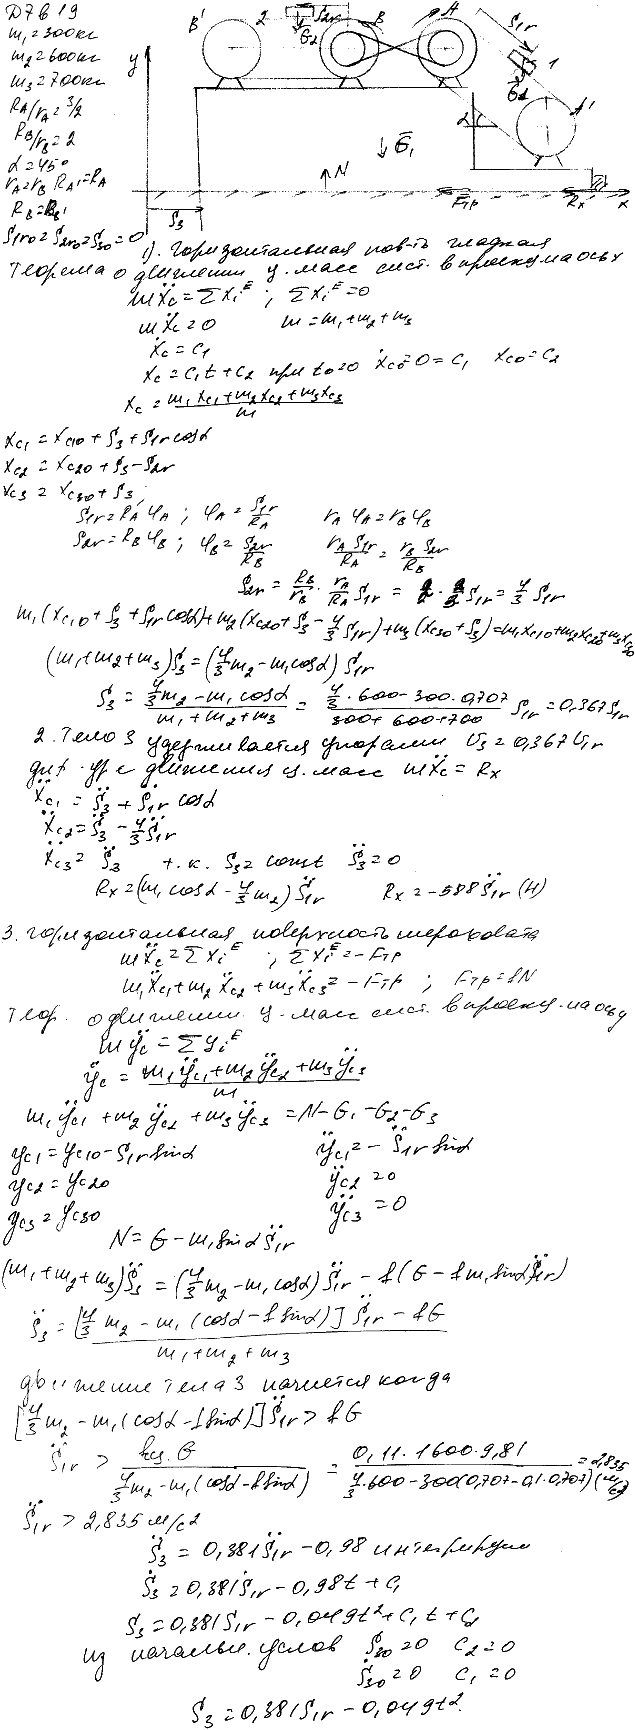 Д7 В 19
m₁=300кг
m₂=600кг
m₃=700кг
R_A/r_A=3/2
R_B/r_B=2
α=45°
r_A=r_B R_A'=R_A
R_B=R_B'
S₁r₀=S₂r₀=S₃₀=0
B' 2 S₂r G₂ B A S₁r 1 G₁ A'
y α Ḡ₁ N Fтр Rx x
S₃
1). Горизонтальная пов-ть гладкая
Теорема о движении ц. масс сист. в проекц. на ось x
mẍc=ΣXiᴱ ; ΣXiᴱ=0
mẍc=0 m=m₁+m₂+m₃
ẋc=C₁
xc=C₁t+C₂ при t₀=0 ẋc₀=0=C₁ xc₀=C₂
xc=(m₁xc₁+m₂xc₂+m₃xc₃)/m
xc₁=xc₁₀+S₃+S₁r cosα
xc₂=xc₂₀+S₃-S₂r
xc₃=xc₃₀+S₃;
S₁r=R_Aφ_A ; φ_A=S₁r/R_A r_Aφ_A=r_Bφ_B
S₂r=R_Bφ_B ; φ_B=S₂r/R_B r_A S₁r/R_A=r_B S₂r/R_B
S₂r=R_B/r_B · r_A/R_A S₁r = S₁r=4/3 S₁r
m₁(xc₁₀+S₃+S₁r cosα)+m₂(xc₂₀+S₃-4/3 S₁r)+m₃(xc₃₀+S₃)=m₁xc₁₀+m₂xc₂₀+m₃xc₃₀
(m₁+m₂+m₃)S₃=(4/3 m₂-m₁cosα)S₁r
S₃=(4/3 m₂-m₁cosα)/(m₁+m₂+m₃)=(4/3·600-300·0,707)/(300+600+700) S₁r=0,367S₁r
2. Тело 3 удерживается упорами U₃=0,367U₁r
диф. ур-е движения ц. масс mẍc=Rx
ẍc₁=S̈₃+S̈₁r cosα
ẍc₂=S̈₃-4/3 S̈₁r
ẍc₃=S̈₃ т.к. S₃=const S̈₃=0
Rx=(m₁cosα-4/3 m₂)S̈₁r Rx=-588S̈₁r (Н)
3. Горизонтальная поверхность шероховата
mẍc=ΣXiᴱ ; ΣXiᴱ=-Fтр
m₁ẍc₁+m₂ẍc₂+m₃ẍc₃=-Fтр ; Fтр=fN
Теор. о движении ц. масс сист. в проекц. на ось y
mÿc=Σyiᴱ
ÿc=(m₁ÿc₁+m₂ÿc₂+m₃ÿc₃)/m
m₁ÿc₁+m₂ÿc₂+m₃ÿc₃=N-G₁-G₂-G₃
yc₁=yc₁₀-S₁r sinα ÿc₁=-S̈₁r sinα
yc₂=yc₂₀ ÿc₂=0
yc₃=yc₃₀ ÿc₃=0
N=G-m₁sinαS̈₁r
(m₁+m₂+m₃)S̈₃=(4/3 m₂-m₁cosα)S̈₁r-f(G-fm₁sinαS̈₁r)
S̈₃=([4/3 m₂-m₁(cosα-f sinα)]S̈₁r-fG)/(m₁+m₂+m₃)
движение тела 3 начнется когда
[4/3 m₂-m₁(cosα-f sinα)]S̈₁r>fG
S̈₁r>fсц.G/(4/3 m₂-m₁(cosα-f sinα))=0,11·1600·9,81/(4/3·600-300(0,707-0,1·0,707))=2,835 (м/с²)
S̈₁r>2,835 м/с²
S̈₃=0,381S̈₁r-0,98 интегрируем
Ṡ₃=0,381Ṡ₁r-0,98t+C₁
S₃=0,381S₁r-0,049t²+C₁t+C₂
из начальн. услов S₃₀=0 C₂=0
Ṡ₃₀=0 C₁=0
S₃=0,381S₁r-0,049t².